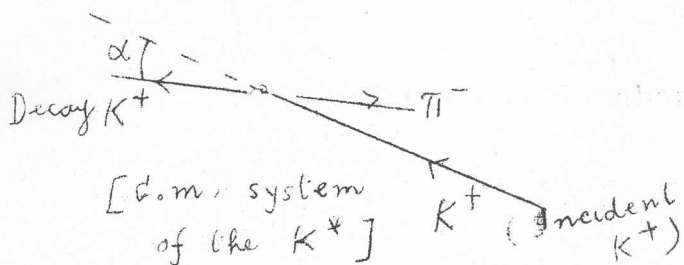 α
π⁻
Decay K⁺
[C.m. system
of the K*]
K⁺
(Incident
K⁺)